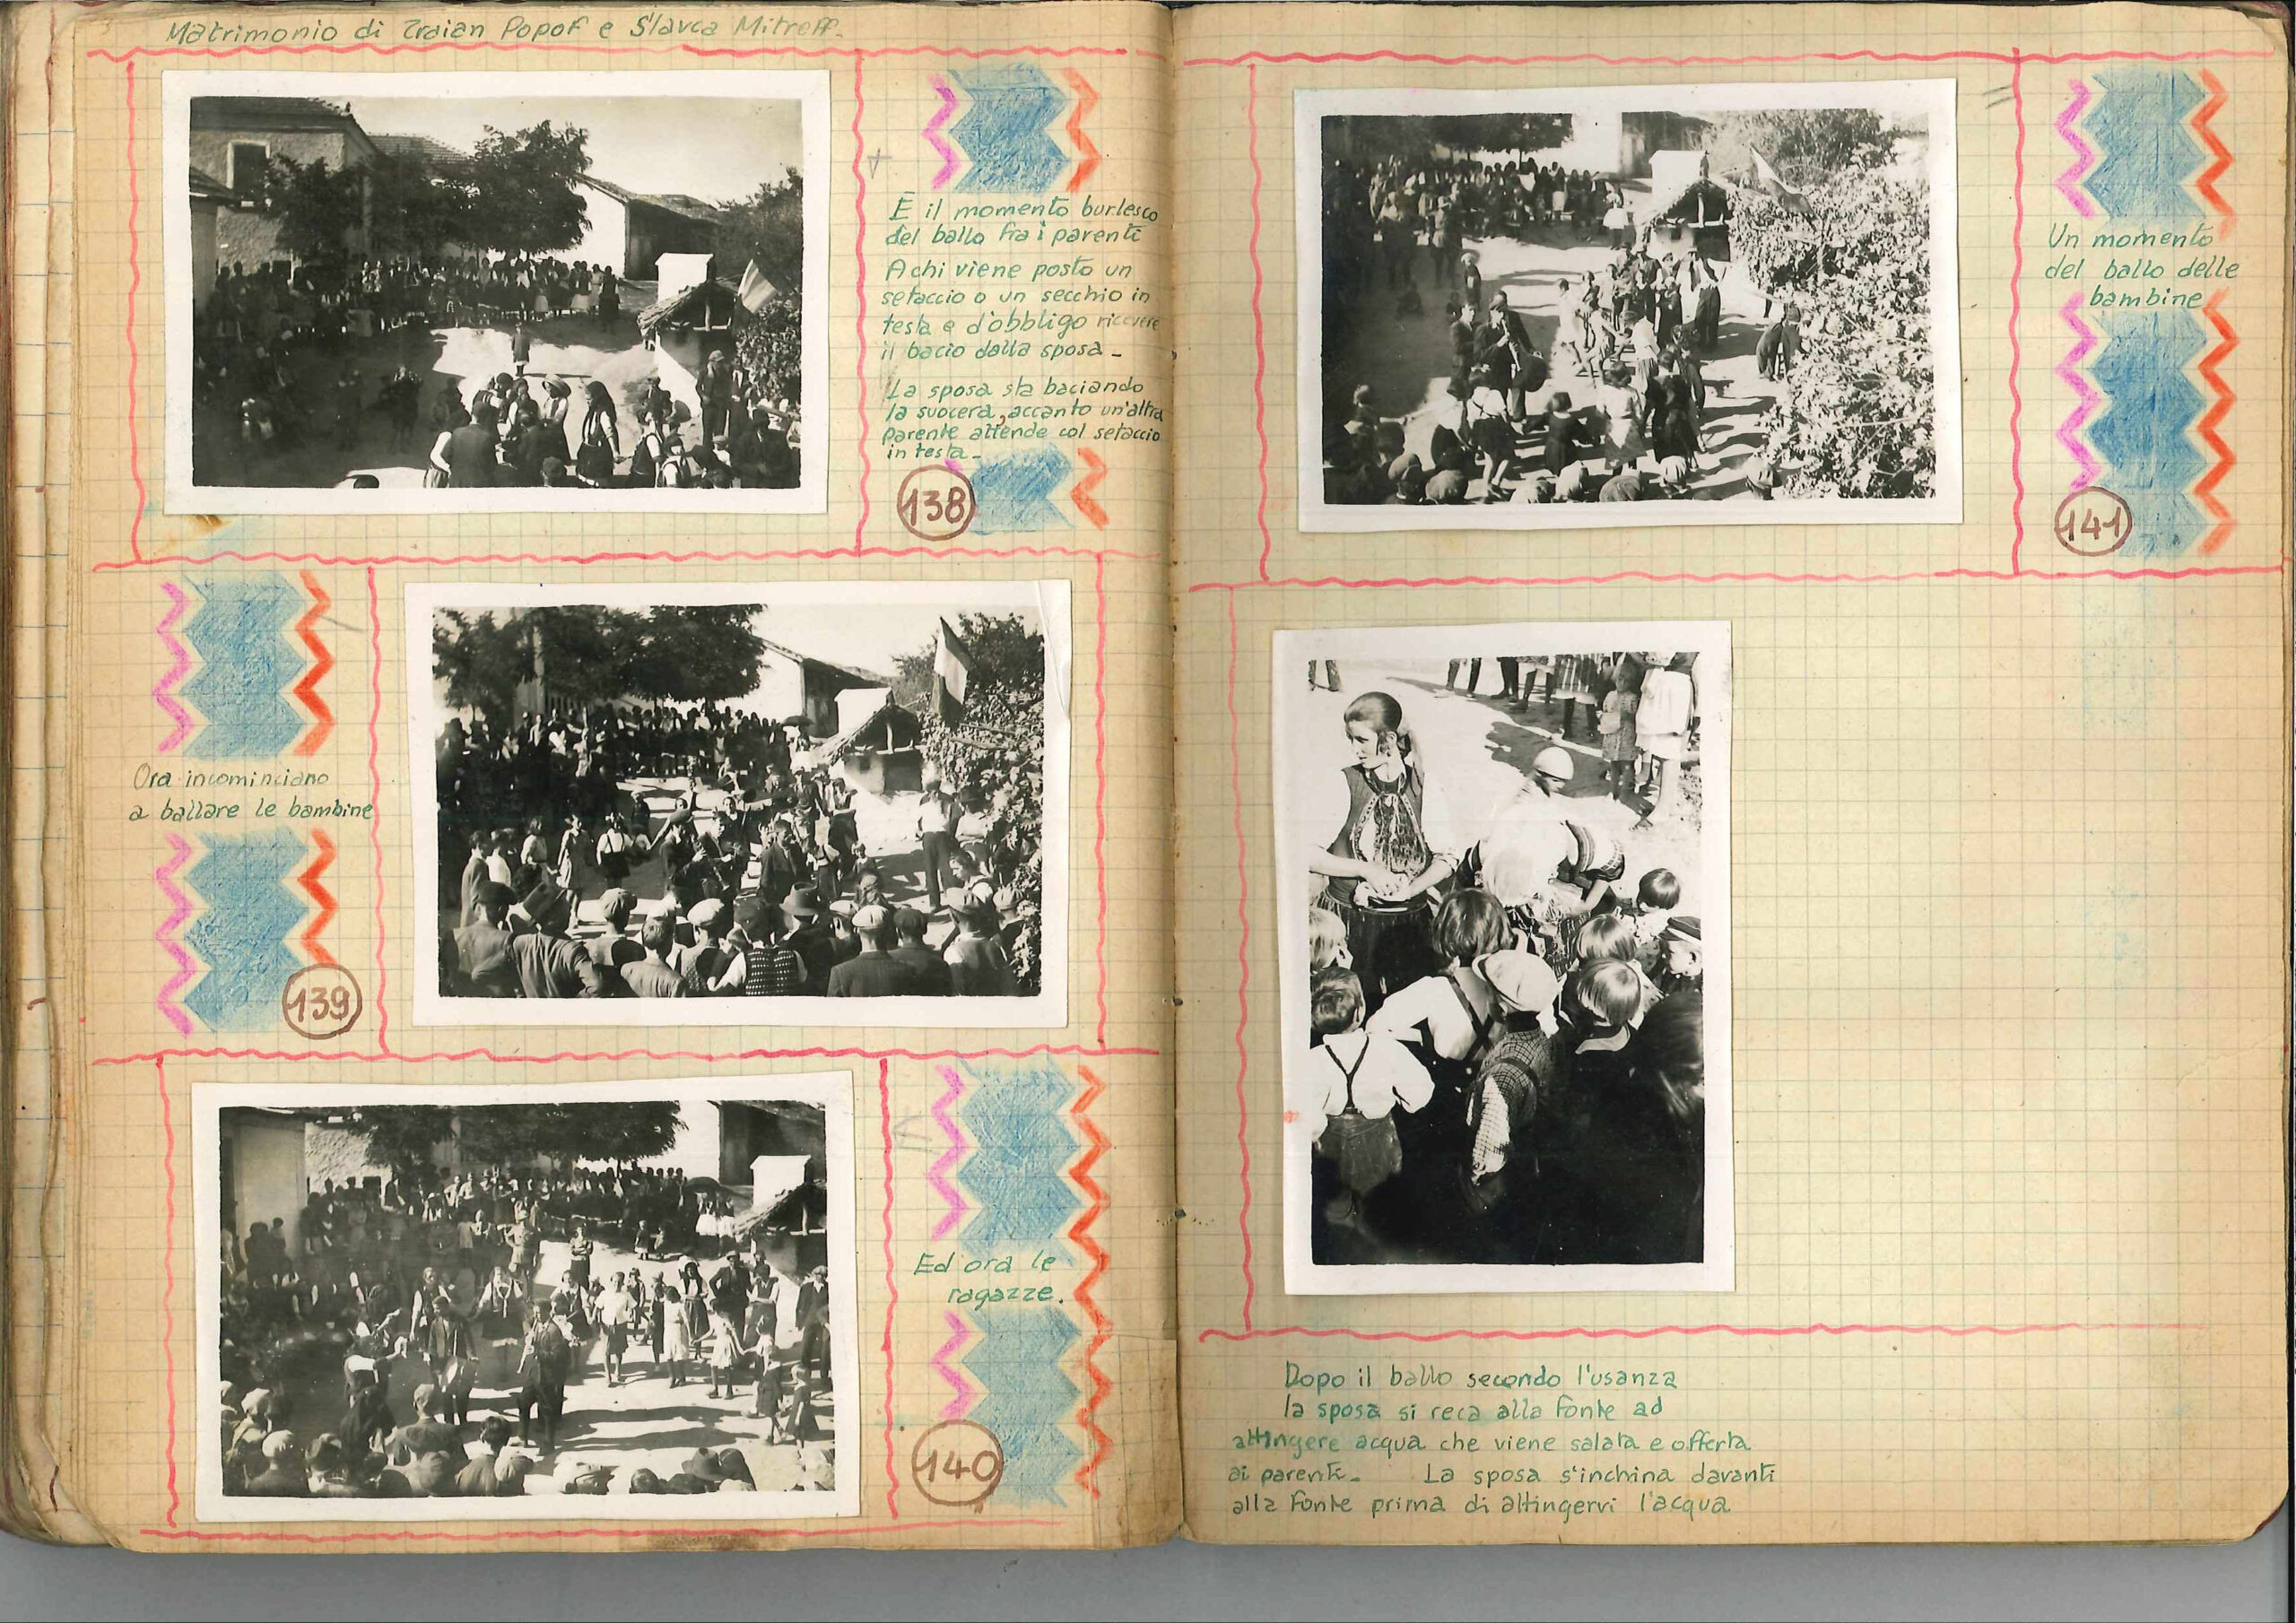 Matrimonio di Traian Popof e Slavca Mitreff.
È il momento burlesco
del ballo fra i parenti
A chi viene posto un
setaccio o un secchio in
testa e d'obbligo ricevere
il bacio dalla sposa_
La sposa sta baciando
la suocera, accanto un'altra
parente attende col setaccio
in testa_
138
Ora incominciano
a ballare le bambine
139
Ed ora le
ragazze.
140
Un momento
del ballo delle
bambine
141
Dopo il ballo secondo l'usanza
la sposa si reca alla fonte ad
attingere acqua che viene salata e offerta
ai parenti_ La sposa s'inchina davanti
alla fonte prima di attingervi l'acqua